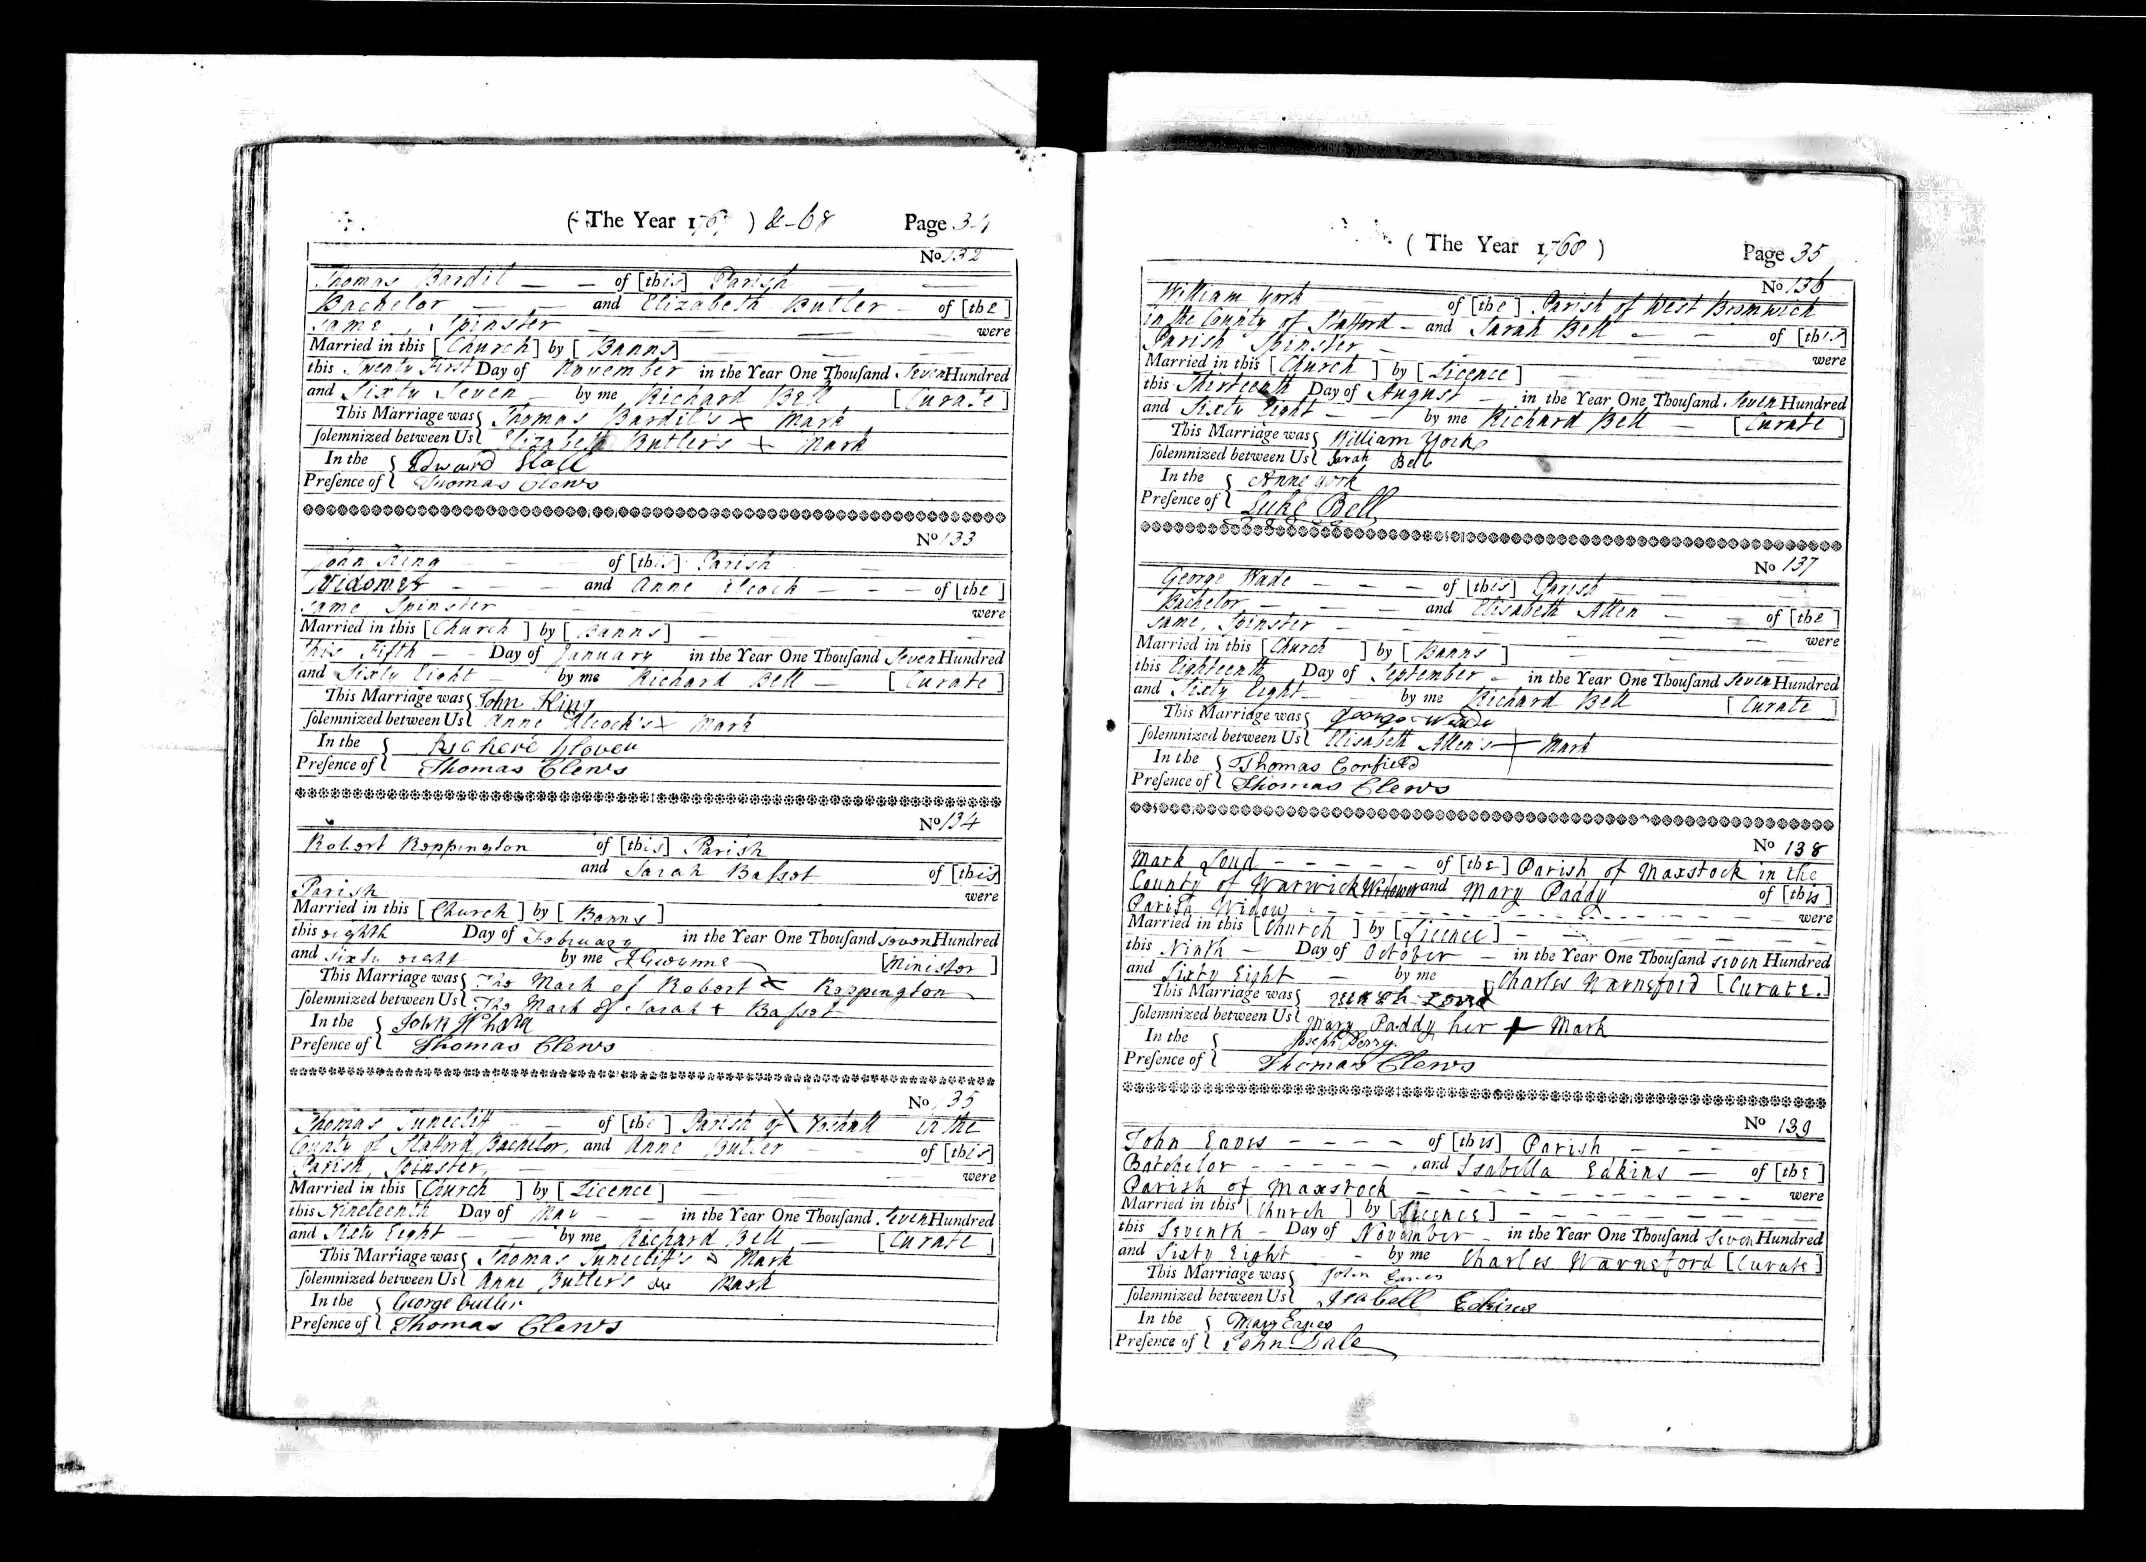 ( The Year 1767 ) & - 68 Page 34
No 132
Thomas Bardil — — of [this] Parish — —
Bachelor — — and Elizabeth Butler — of [the]
same, Spinster — — — were
Married in this [Church] by [Banns] — —
this Twenty First Day of November in the Year One Thousand Seven Hundred
and Sixty Seven — by me Richard Bell [Curate]
This Marriage was Thomas Bardil's x Mark
solemnized between Us Elizabeth Butler's + Mark
In the Edward
Presence of Thomas Clews
No 133
John King — — of [this] Parish —
Widower — — — and Anne Alcock — — — of [the]
same Spinster — — were
Married in this [Church] by [Banns] — —
this Fifth — — Day of January in the Year One Thousand Seven Hundred
and Sixty Eight — by me Richard Bell — [Curate]
This Marriage was John King
solemnized between Us Anne Alcock's x Mark
In the
Presence of Thomas Clews
No 134
Robert Reppington of [this] Parish
and Sarah Bassot of [this]
Parish were
Married in this [Church] by [Banns]
this eighth Day of February in the Year One Thousand seven Hundred
and sixty eight by me J Gwynne [Minister]
This Marriage was The Mark of Robert x Reppington
solemnized between Us The Mark of Sarah + Bassot
In the John
Presence of Thomas Clews
No 135
Thomas Tunecliff — of [the] Parish of Yoxhall in the
County of Stafford Bachelor, and Anne Butler — — of [this]
Parish, Spinster, — — were
Married in this [Church] by [Licence] — —
this Nineteenth Day of May — — in the Year One Thousand Seven Hundred
and Sixty Eight — — by me Richard Bell — [Curate]
This Marriage was Thomas Tunecliff's x Mark
solemnized between Us Anne Butler's Mark
In the George Butler
Presence of Thomas Clews
( The Year 1768 ) Page 35
No 136
William York — of [the] Parish of West Bromwich
in the County of Stafford — and Sarah Bell — — of [this]
Parish Spinster — were
Married in this [Church] by [Licence] — —
this Thirteenth Day of August — in the Year One Thousand Seven Hundred
and Sixty Eight — — by me Richard Bell — [Curate]
This Marriage was William York
solemnized between Us Sarah Bell
In the Anne York
Presence of Luke Bell
No 137
George Wade — — — of [this] Parish —
Bachelor — — — and Elisabeth Allen — — of [the]
same, Spinster — — — were
Married in this [Church] by [Banns] — —
this Eighteenth Day of September — in the Year One Thousand Seven Hundred
and Sixty Eight — by me Richard Bell [Curate]
This Marriage was George Wade
solemnized between Us Elisabeth Allen's + Mark
In the Thomas Corfield
Presence of Thomas Clews
No 138
Mark Loud — — — — — of [the] Parish of Maxstock in the
County of Warwick Widower and Mary Paddy of [this]
Parish Widow - - - - - were
Married in this [Church] by [Licence] — — —
this Ninth — Day of October — in the Year One Thousand seven Hundred
and Sixty Eight — by me Charles Warneford [Curate.]
This Marriage was
solemnized between Us Mary Paddy her + Mark
In the Joseph Perry.
Presence of Thomas Clews
No 139
John Eaves — — — — of [this] Parish — — —
Batchelor - - - - - and Isabella Edkins — of [the]
Parish of Maxstock — — — — — were
Married in this [Church] by [Licence] — — —
this Seventh — Day of November — in the Year One Thousand Seven Hundred
and Sixty Eight — by me Charles Warneford [Curate]
This Marriage was John Eaves
solemnized between Us Isabell Edkins
In the Mary Eaves
Presence of John Dale